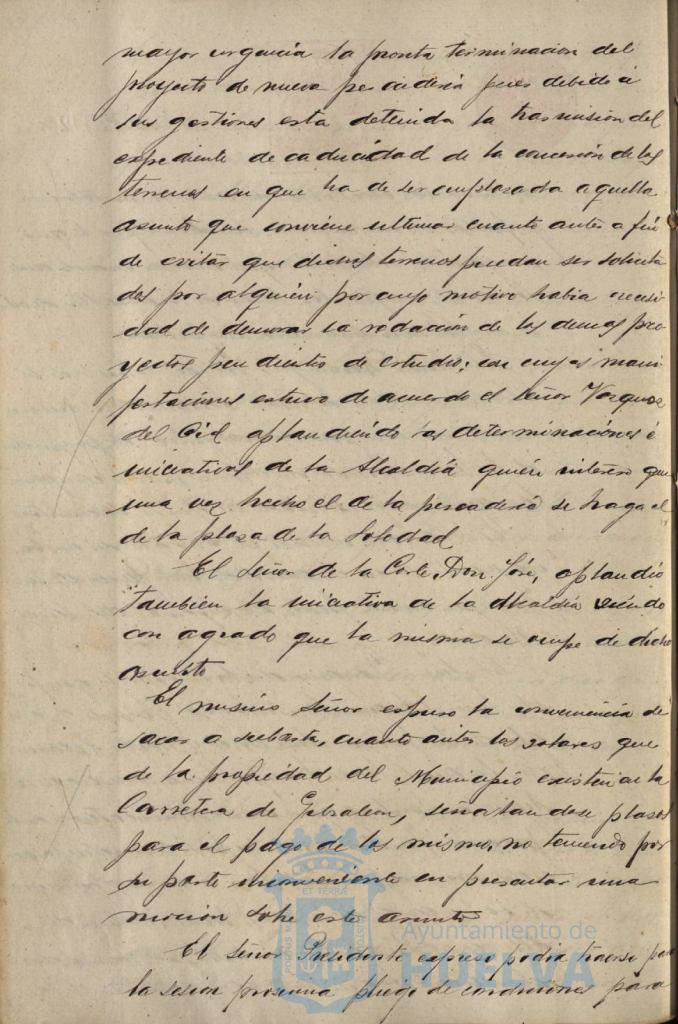 mayor urgencia la pronta terminacion del
proyecto de nueva pescaderia pues debido á
sus gestiones esta detenida la trasmision del
expediente de caducidad de la concesión de los
terrenos en que ha de ser emplazada aquella
asunto que conviene ultimar cuanto antes a fin
de evitar que dichos terrenos puedan ser solicita
dos por alguién por cuyo motivo habia necesi
dad de demorar la redacción de los demas pro
yectos pendientes de estudio; con cuyas mani
festaciones estuvo de acuerdo el Señor Vazquez
del Cid aplaudiendo las determinaciónes é
iniciativas de la Alcaldiá quién intereso que
una vez hecho el de la pescaderia se haga el
de la plaza de la Soledad
El Señor de la Corte, Don José, aplaudio
tambien la iniciativa de la Alcaldia viendo
con agrado que la misma se ocupe de dicho
asunto
El mismo Señor expuso la conveniencia de
sacar a subasta, cuanto antes los solares que
de la propiedad del Municipio existen en la
Carretera de Gibraleon, señalandose plazos
para el pago de los mismos, no teniendo por
su parte inconveniente en presentar una
moción sobre este asunto
El Señor Presidente expreso podia traerse para
la sesion proxima pliego de condiciones para
Ayuntamiento de
HUELVA